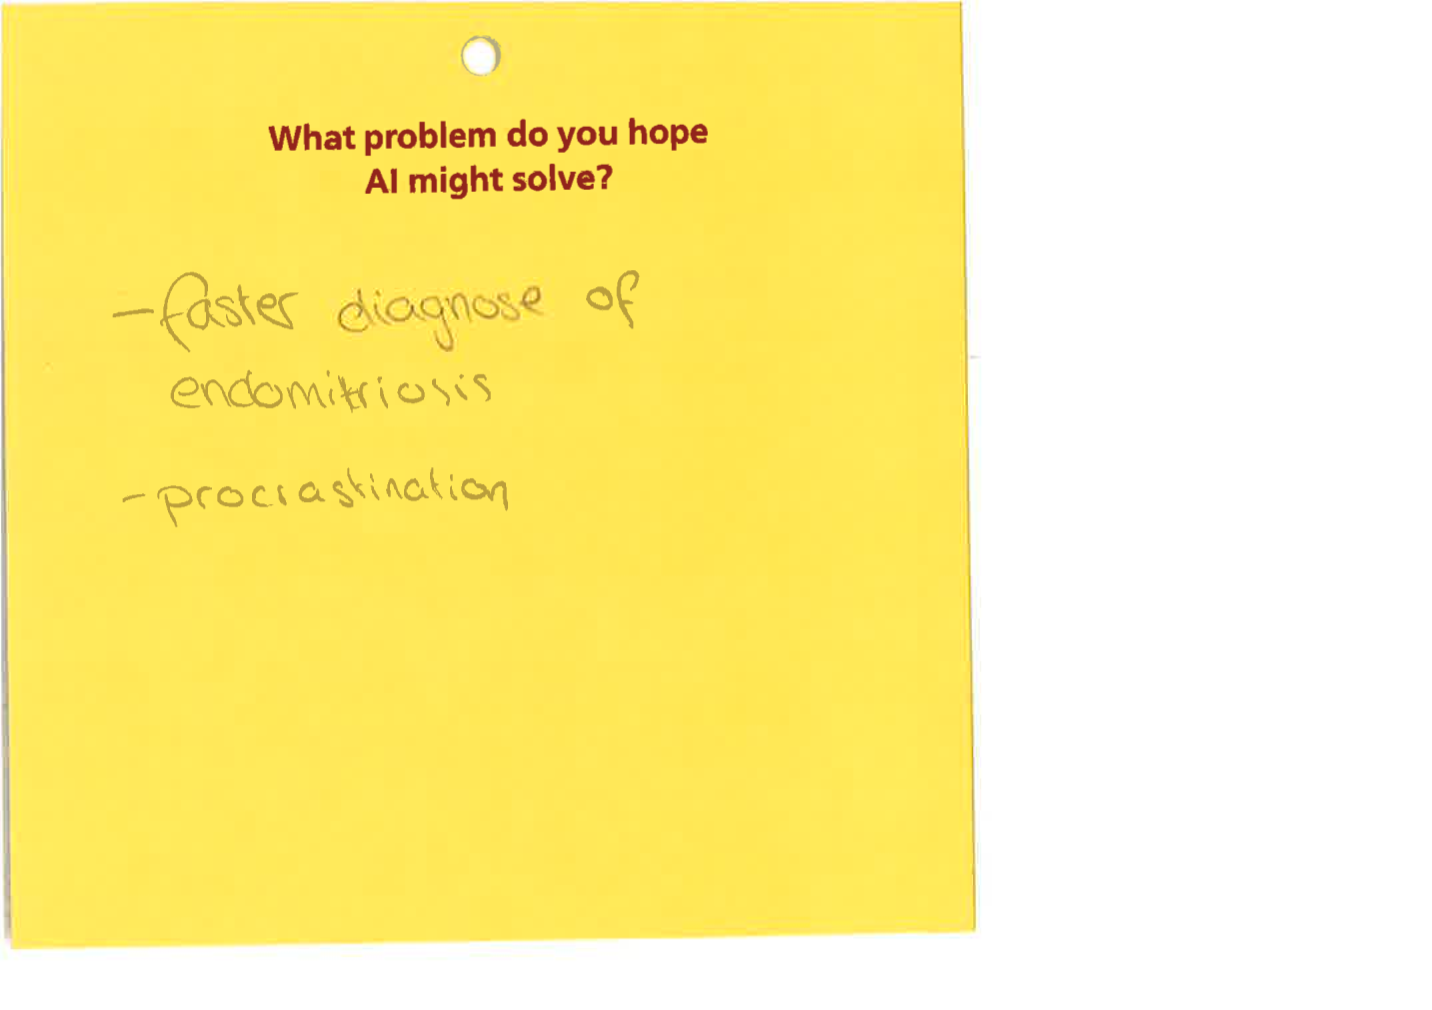 What problem do you hope
AI might solve?
- faster diagnose of
endomitriosis
- procrastination